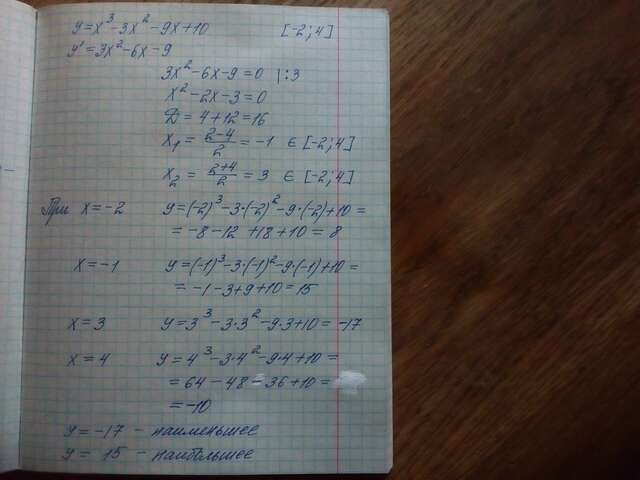 y=x³-3x²-9x+10 [-2;4]
y'=3x²-6x-9
3x²-6x-9=0 |:3
x²-2x-3=0
D=4+12=16
x₁=(2-4)/2=-1 ∈ [-2;4]
x₂=(2+4)/2=3 ∈ [-2;4]
При x=-2 y=(-2)³-3·(-2)²-9·(-2)+10=
=-8-12+18+10=8
x=-1 y=(-1)³-3·(-1)²-9·(-1)+10=
=-1-3+9+10=15
x=3 y=3³-3·3²-9·3+10=-17
x=4 y=4³-3·4²-9·4+10=
=64-48-36+10=
=-10
y=-17 - наименьшее
y=15 - наибольшее